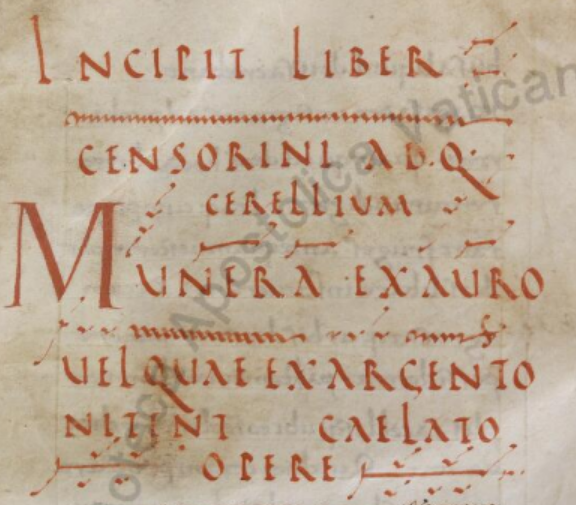 INCIPIT LIBER
CENSORINI AD·Q·
CERELLIUM
MUNERA EX AURO
UEL QUAE EX ARGENTO
NITENT CAELATO
OPERE